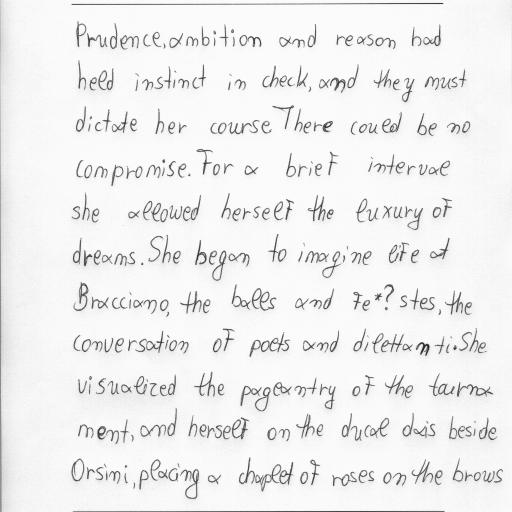 Prudence, ambition and reason had
held instinct in check, and they must
dictate her course. There could be no
compromise. For a brief interval
she allowed herself the luxury of
dreams. She began to imagine life at
Bracciano, the balls and fe*?stes, the
conversation of poets and dilettanti. She
visualized the pageantry of the tourna
ment, and herself on the ducal dais beside
Orsini, placing a chaplet of roses on the brows